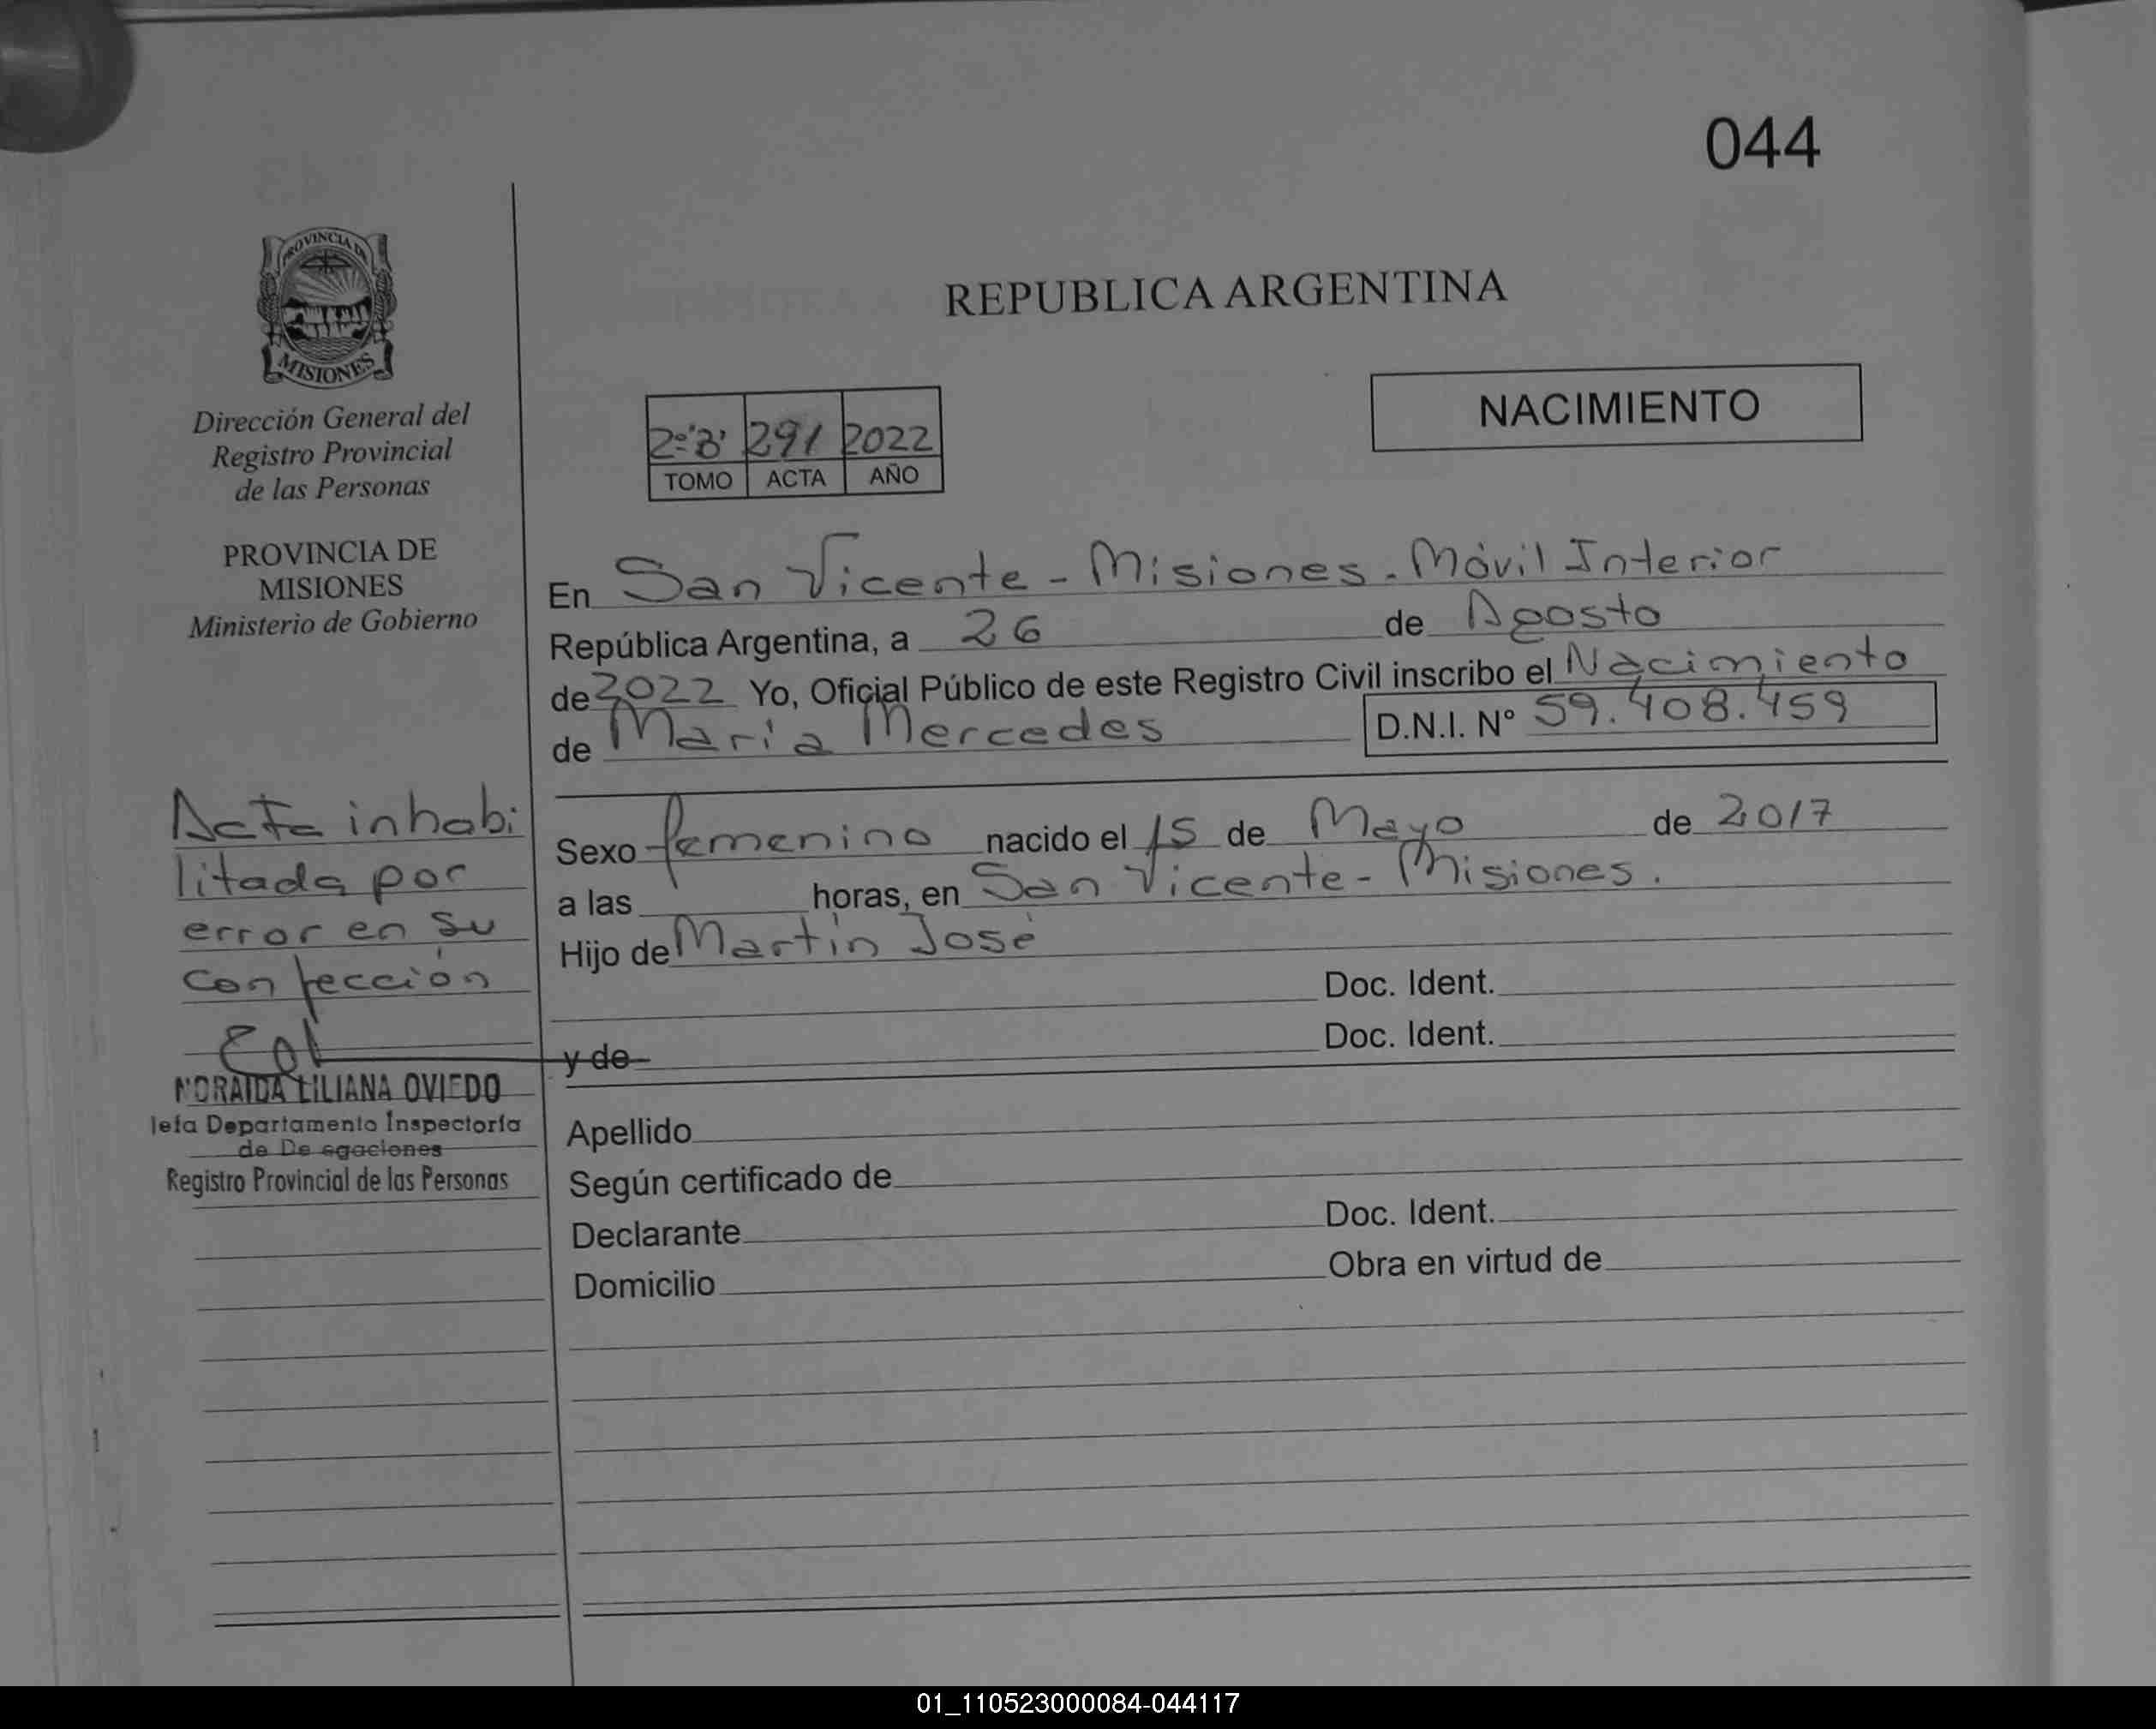 044
PROVINCIA DE
MISIONES
REPUBLICA ARGENTINA
Dirección General del
Registro Provincial
de las Personas
PROVINCIA DE
MISIONES
Ministerio de Gobierno
NACIMIENTO
2º'B' 291 2022
TOMO ACTA AÑO
En San Vicente - Misiones. Móvil Interior
República Argentina, a 26 de Agosto
de 2022 Yo, Oficial Público de este Registro Civil inscribo el Nacimiento
de Maria Mercedes D.N.I. Nº 59.408.459
Sexo femenino nacido el 15 de Mayo de 2017
a las horas, en San Vicente - Misiones.
Hijo de Martín José
Doc. Ident.
y de Doc. Ident.
Apellido
Según certificado de
Declarante Doc. Ident.
Domicilio Obra en virtud de
Acta inhabi
litada por
error en su
confección
NORAIDA LILIANA OVIEDO
Jefa Departamento Inspectoría
de De egaciones
Registro Provincial de las Personas
01_110523000084-044117